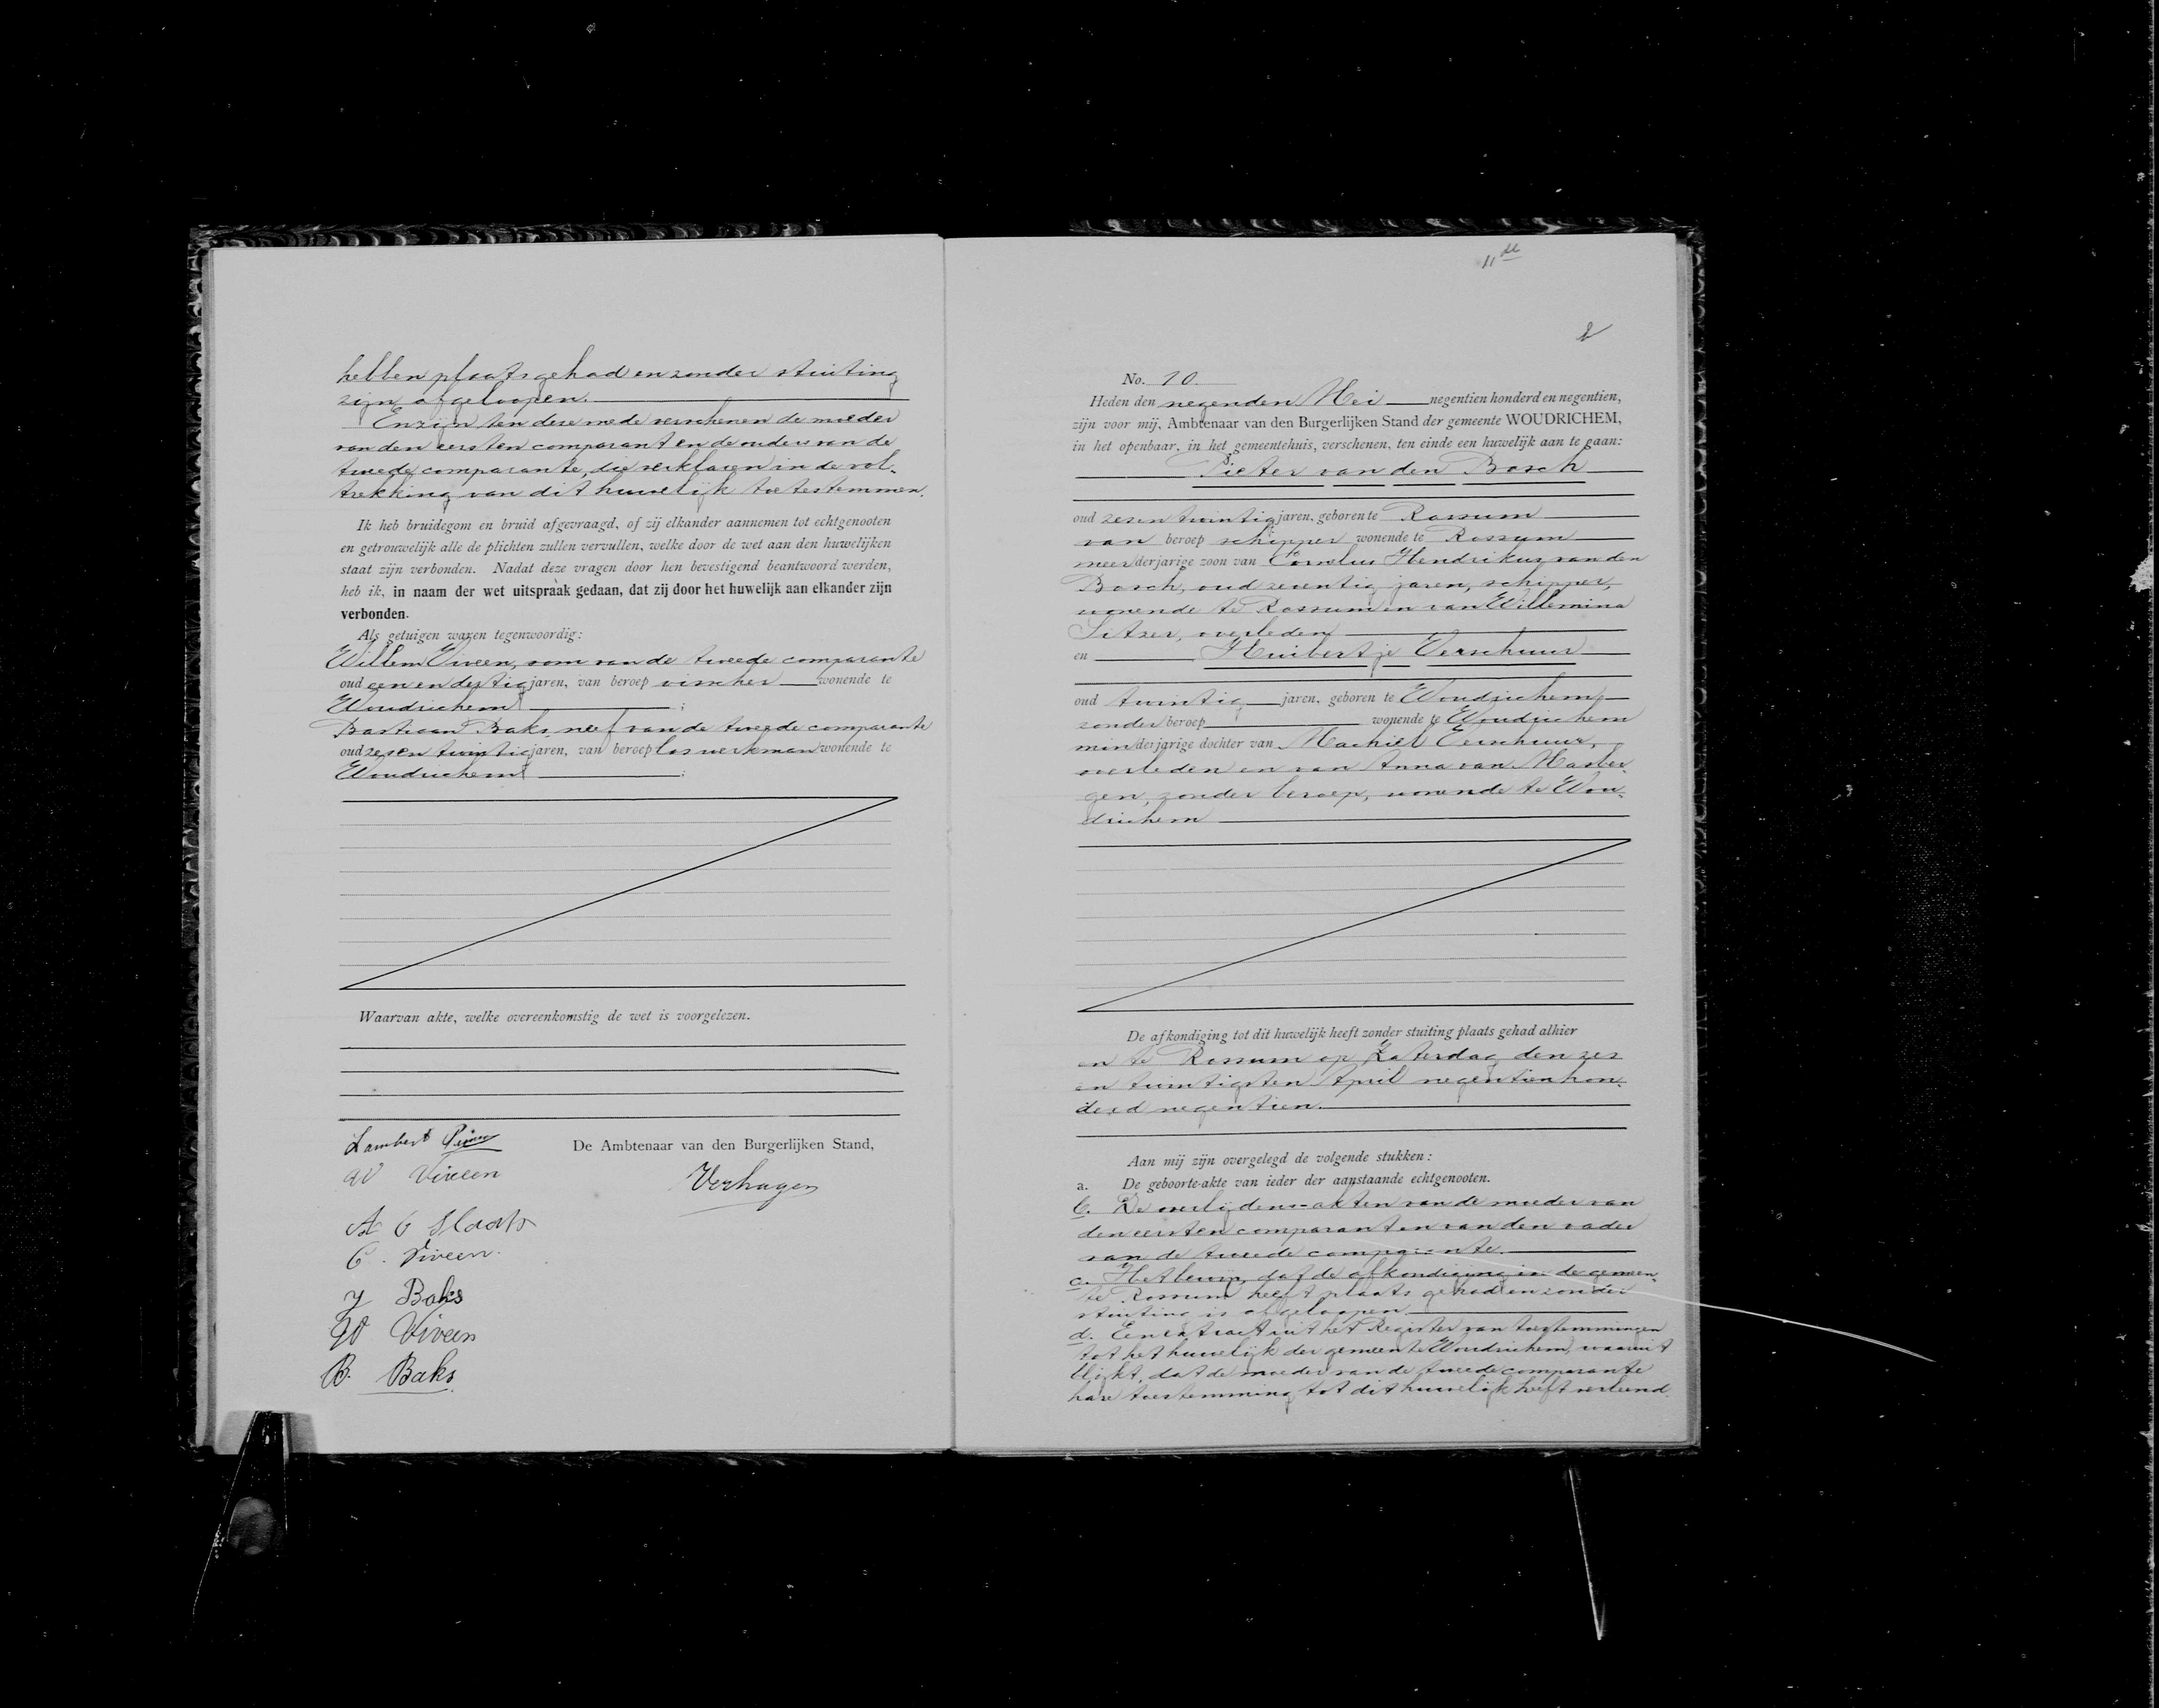 hebben plaats gehad en zonder stuiting
zijn afgeloopen.
En zijn ten deze mede verschenen de moeder
van den eersten comparant en de ouders van de
tweede comparante, die verklaren in de vol-
trekking van dit huwelijk toetestemmen.
Ik heb bruidegom en bruid afgevraagd, of zij elkander aannemen tot echtgenooten
en getrouwelijk alle de plichten zullen vervullen, welke door de wet aan den huwelijken
staat zijn verbonden. Nadat deze vragen door hen bevestigend beantwoord werden,
heb ik, in naam der wet uitspraak gedaan, dat zij door het huwelijk aan elkander zijn
verbonden.
Als getuigen waren tegenwoordig:
Willem Viveen, oom van de tweede comparante
oud een en dertig jaren, van beroep visscher wonende te
Woudrichem ;
Bastiaan Baks, neef van de tweede comparante
oud zes en twintig jaren, van beroep los werkman wonende te
Woudrichem ;
Waarvan akte, welke overeenkomstig de wet is voorgelezen.
Lambert
De Ambtenaar van den Burgerlijken Stand,
W Viveen
Verhagen
A C Slaats
C. Viveen.
J Baks
W Viveen
B. Baks
11de
No. 10.
Heden den negenden Mei negentien honderd en negentien,
zijn voor mij, Ambtenaar van den Burgerlijken Stand der gemeente WOUDRICHEM,
in het openbaar, in het gemeentehuis, verschenen, ten einde een huwelijk aan te gaan:
Pieter van den Bosch
oud zes en twintig jaren, geboren te Rossum
van beroep schipper wonende te Rossum
meerderjarige zoon van Cornelus Hendrikus van den
Bosch, oud zeventig jaren, schipper,
wonende te Rossum en van Willemina
Sitzer, overleden
en Huibertje Verschuur
oud twintig jaren, geboren te Woudrichem,
zonder beroep wonende te Woudrichem
minderjarige dochter van Machiel Verschuur,
overleden en van Anna van Maste-
gen, zonder beroep, wonende te Wou-
drichem
De afkondiging tot dit huwelijk heeft zonder stuiting plaats gehad alhier
en te Rossum op Zaterdag den zes
en twintigsten April negentien hon-
derd negentien.
Aan mij zijn overgelegd de volgende stukken:
a. De geboorte-akte van ieder der aanstaande echtgenooten.
b. De overlijdens-akten van de moeder van
den eersten comparant en van den vader
van de tweede comparante.
c. Het bewijs, dat de afkondiging in de gemeen-
te Rossum heeft plaats gehad en zonder
stuiting is afgeloopen
d. Een extract uit het Register van toestemmingen
tot het huwelijk der gemeente Woudrichem, waaruit
blijkt, dat de moeder van de tweede comparante
hare toestemming tot dit huwelijk heeft verleend.